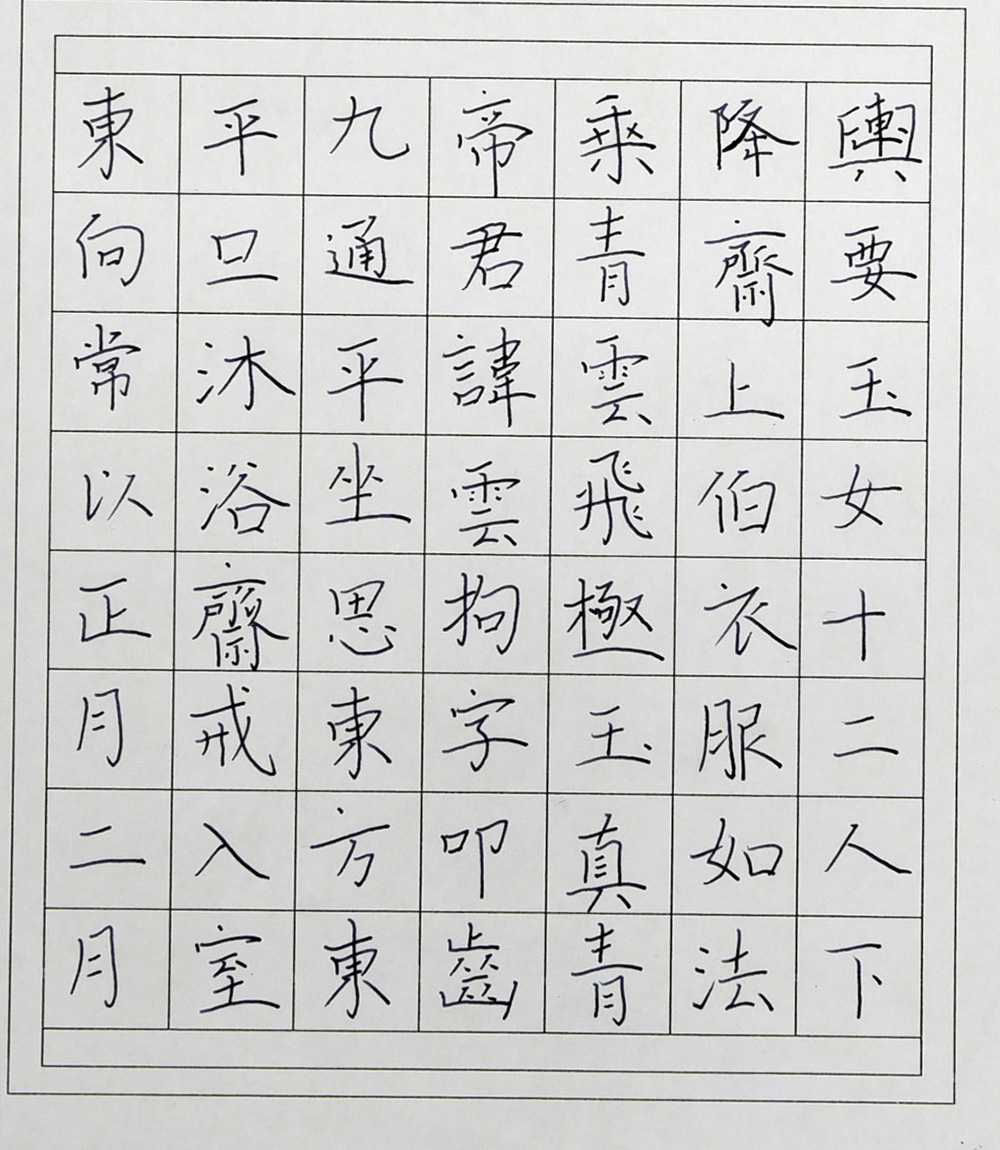 東向常以正月二月
平旦沐浴齋戒入室
九通平坐思東方東
帝君諱雲拘字叩齒
乘青雲飛極玉真青
降齋上伯衣服如法
輿要玉女十二人下